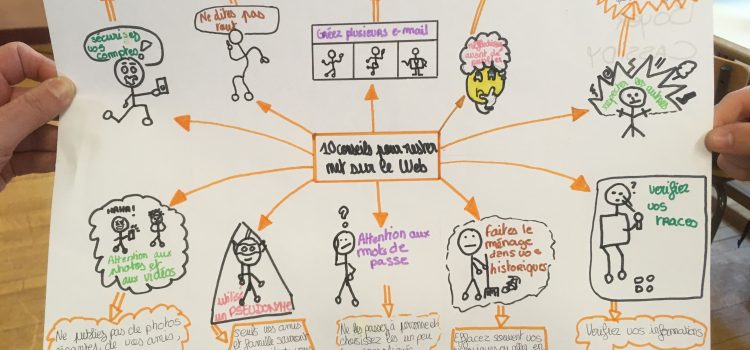 Sécurisez
vos
comptes
Ne dites pas
tout
Créez plusieurs e-mail
Réfléchissez
avant de
publier
respectez les autres
10 conseils pour rester
net sur le Web
HAHA!
Attention aux
photos et
aux vidéos
utilisez
un PSEUDONYME
?
Attention aux
mots de
passe
Faites le
ménage
dans vos
historiques
?
Verifiez
vos
traces
Ne publiez pas de photos
de vos amis
Seuls vos amis
et famille sauront
Ne les passez à personne et
choisissez les un peu
Effacez souvent vos
Verifiez vos informations